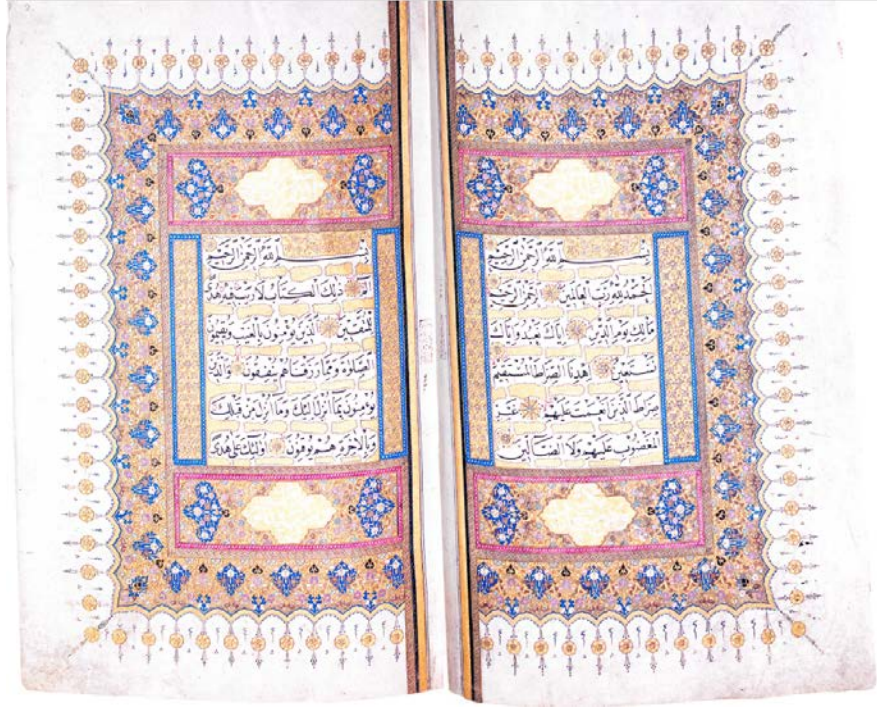 بِسْمِ اللَّهِ الرَّحْمَٰنِ الرَّحِيمِ
الْحَمْدُ لِلَّهِ رَبِّ الْعَالَمِينَ الرَّحْمَٰنِ الرَّحِيمِ
مَالِكِ يَوْمِ الدِّينِ إِيَّاكَ نَعْبُدُ وَإِيَّاكَ
نَسْتَعِينُ اهْدِنَا الصِّرَاطَ الْمُسْتَقِيمَ
صِرَاطَ الَّذِينَ أَنْعَمْتَ عَلَيْهِمْ غَيْرِ
الْمَغْضُوبِ عَلَيْهِمْ وَلَا الضَّالِّينَ
بِسْمِ اللَّهِ الرَّحْمَٰنِ الرَّحِيمِ
الم ذَٰلِكَ الْكِتَابُ لَا رَيْبَ فِيهِ هُدًى
لِلْمُتَّقِينَ الَّذِينَ يُؤْمِنُونَ بِالْغَيْبِ وَيُقِيمُونَ
الصَّلَوٰةَ وَمِمَّا رَزَقْنَاهُمْ يُنْفِقُونَ وَالَّذِينَ
يُؤْمِنُونَ بِمَا أُنْزِلَ إِلَيْكَ وَمَا أُنْزِلَ مِنْ قَبْلِكَ
وَبِالْآخِرَةِ هُمْ يُوقِنُونَ أُولَٰئِكَ عَلَىٰ هُدًى